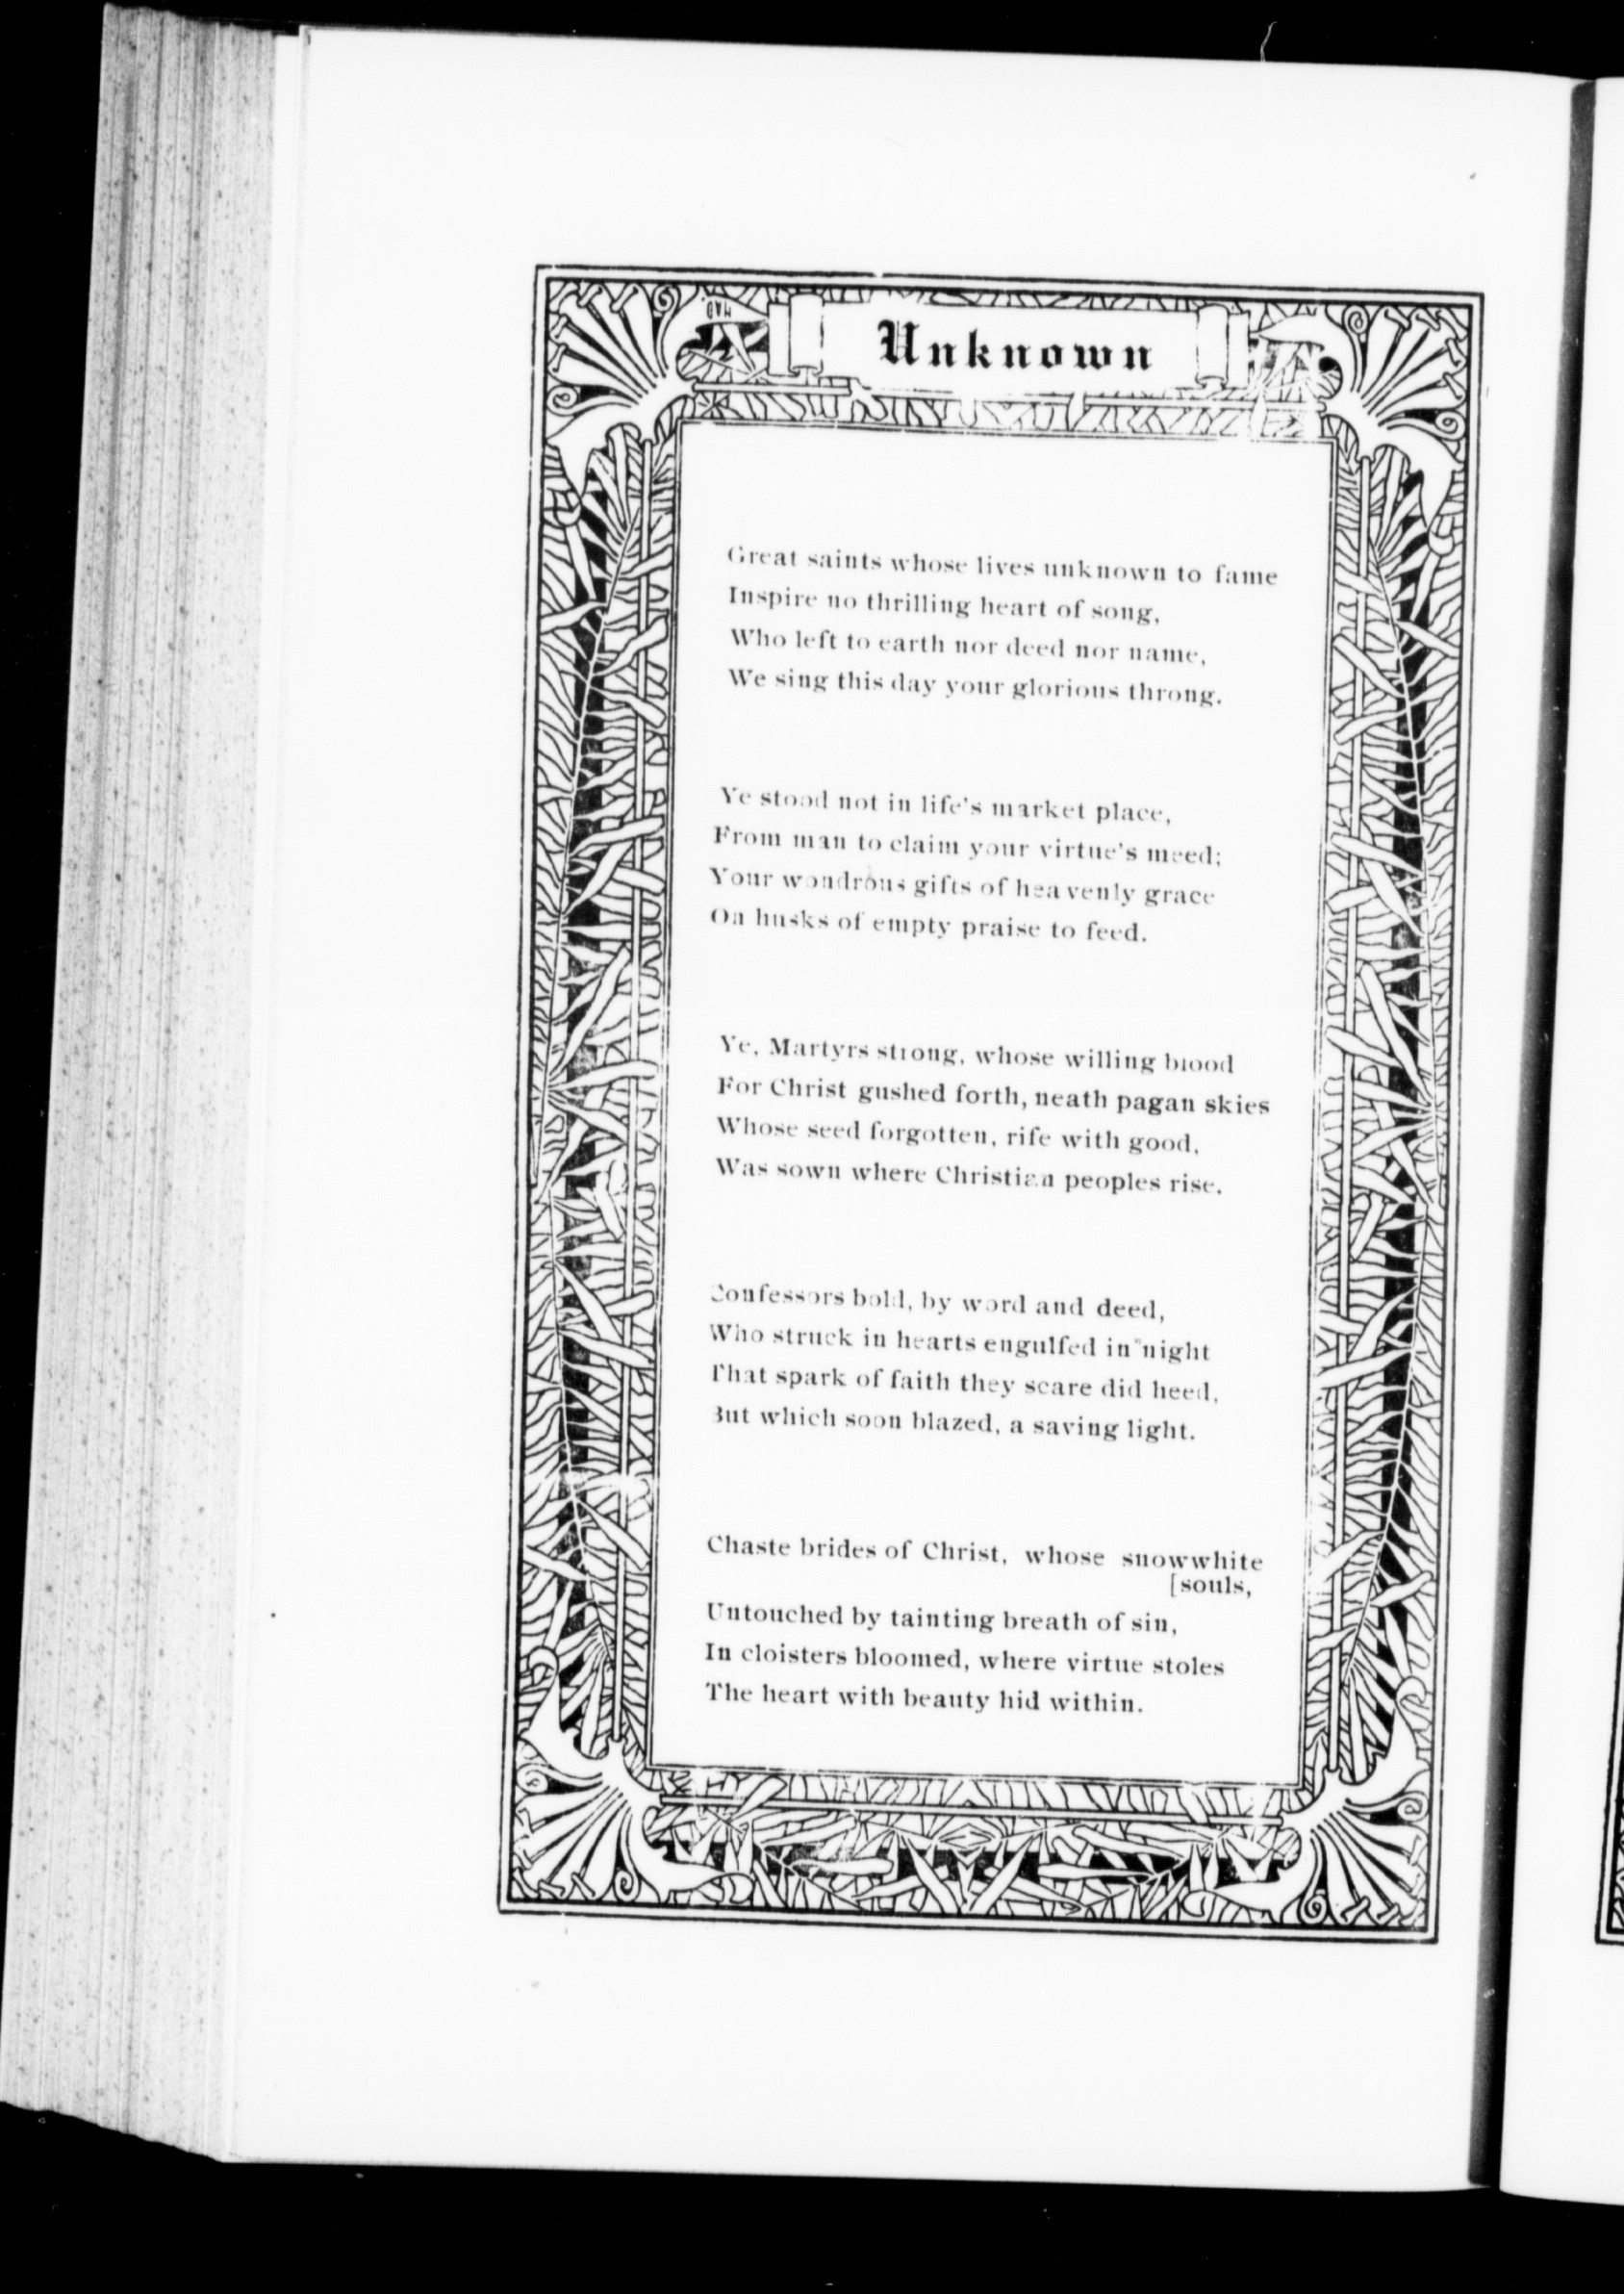 Unknown
Great saints whose lives unknown to fame
Inspire no thrilling heart of song,
Who left to earth nor deed nor name,
We sing this day your glorious throng.
Ye stood not in life's market place,
From man to claim your virtue's meed;
Your wondrous gifts of heavenly grace
On husks of empty praise to feed.
Ye, Martyrs strong, whose willing blood
For Christ gushed forth, neath pagan skies
Whose seed forgotten, rife with good,
Was sown where Christian peoples rise.
Confessors bold, by word and deed,
Who struck in hearts engulfed in night
That spark of faith they scare did heed,
But which soon blazed, a saving light.
Chaste brides of Christ, whose snowwhite
[souls,
Untouched by tainting breath of sin,
In cloisters bloomed, where virtue stoles
The heart with beauty hid within.